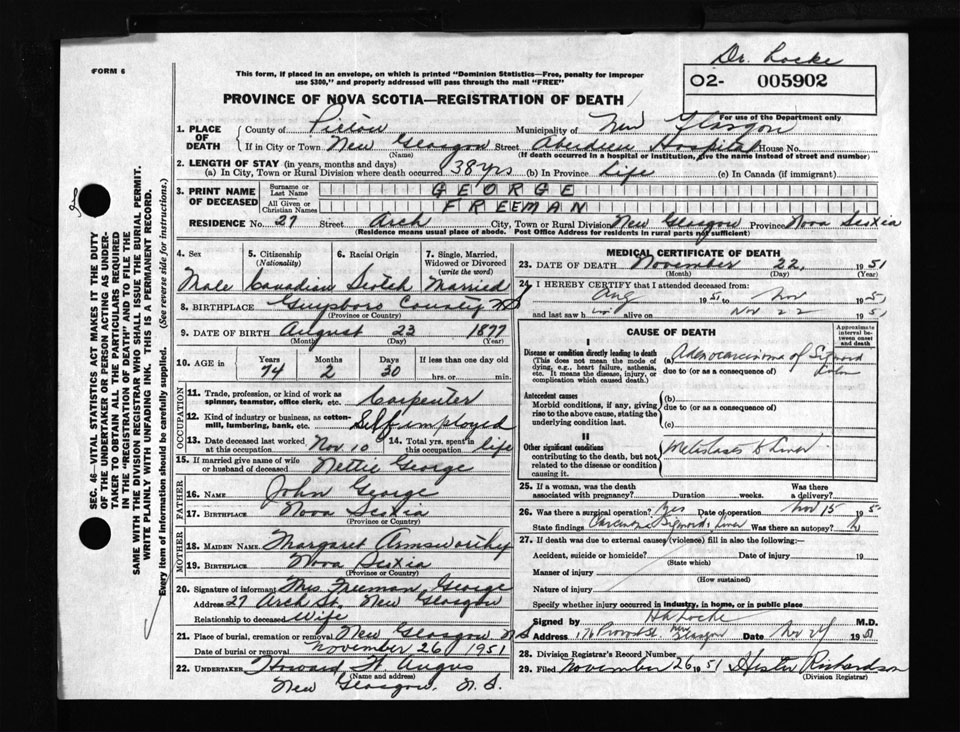 Dr. Locke
FORM 6
O2- 005902
This form, if placed in an envelope, on which is printed "Dominion Statistics—Free, penalty for improper
use $300," and properly addressed will pass through the mail "FREE"
PROVINCE OF NOVA SCOTIA—REGISTRATION OF DEATH
For use of the Department only
1. PLACE OF DEATH
County of Pictou Municipality of New Glasgow
If in City or Town New Glasgow Street Aberdeen Hospital House No.
(Name) (If death occurred in a hospital or institution, give the name instead of street and number)
2. LENGTH OF STAY (in years, months and days)
(a) In City, Town or Rural Division where death occurred 38 yrs (b) In Province Life (c) In Canada (if immigrant)
3. PRINT NAME OF DECEASED
Surname or Last Name GEORGE
All Given or Christian Names FREEMAN
RESIDENCE No. 27 Street Arch City, Town or Rural Division New Glasgow Province Nova Scotia
(Residence means usual place of abode. Post Office Address for residents in rural parts not sufficient)
4. Sex 5. Citizenship (Nationality) 6. Racial Origin 7. Single, Married, Widowed or Divorced (write the word)
Male Canadian Scotch Married
8. BIRTHPLACE Guysboro County NS
(Province or Country)
9. DATE OF BIRTH August 23 1877
(Month) (Day) (Year)
10. AGE in Years Months Days If less than one day old
74 2 30 hrs. or min.
OCCUPATION
11. Trade, profession, or kind of work as spinner, teamster, office clerk, etc. Carpenter
12. Kind of industry or business, as cotton-mill, lumbering, bank, etc. Self imployed
13. Date deceased last worked at this occupation Nov 10 14. Total yrs. spent in this occupation life
15. If married give name of wife or husband of deceased Nettie George
FATHER
16. NAME John George
17. BIRTHPLACE Nova Scotia
(Province or Country)
MOTHER
18. MAIDEN NAME Margaret Armsworthy
19. BIRTHPLACE Nova Scotia
(Province or Country)
20. Signature of informant Mrs. Freeman George
Address 27 Arch St. New Glasgow
Relationship to deceased Wife
21. Place of burial, cremation or removal New Glasgow N.S
Date of burial or removal November 26, 1951
22. UNDERTAKER Howard H. Angus
(Name and address)
New Glasgow, N.S.
MEDICAL CERTIFICATE OF DEATH
23. DATE OF DEATH November 22, 1951
(Month) (Day) (Year)
24. I HEREBY CERTIFY that I attended deceased from:
Aug 1951 to Nov 1951
and last saw h alive on Nov 22 1951
CAUSE OF DEATH
Approximate interval between onset and death
I
Disease or condition directly leading to death
(This does not mean the mode of dying, e.g., heart failure, asthenia, etc. It means the disease, injury, or complication which caused death.)
(a) Adenocarcinoma of Sigmoid Colon
due to (or as a consequence of)
Antecedent causes
Morbid conditions, if any, giving rise to the above cause, stating the underlying condition last.
(b)
due to (or as a consequence of)
(c)
II
Other significant conditions
contributing to the death, but not related to the disease or condition causing it.
Metastases to Liver
25. If a woman, was the death associated with pregnancy? Duration weeks. Was there a delivery?
26. Was there a surgical operation? Yes Date of operation Nov 15 195
State findings Carcinoma Sigmoid, Liver Was there an autopsy?
27. If death was due to external causes (violence) fill in also the following:—
Accident, suicide or homicide? Date of injury 19
(State which)
Manner of injury
(How sustained)
Nature of injury
Specify whether injury occurred in industry, in home, or in public place
Signed by Locke M.D.
Address Provost St. New Glasgow Nov 24 1951
28. Division Registrar's Record Number
29. Filed November 26 1951 Hester Richardson
(Division Registrar)
SEC. 46—VITAL STATISTICS ACT MAKES IT THE DUTY
OF THE UNDERTAKER OR PERSON ACTING AS UNDER-
TAKER TO OBTAIN ALL THE PARTICULARS REQUIRED
IN THE "REGISTRATION OF DEATH" AND TO FILE THE
SAME WITH THE DIVISION REGISTRAR WHO SHALL ISSUE THE BURIAL PERMIT.
WRITE PLAINLY WITH UNFADING INK. THIS IS A PERMANENT RECORD.
Every item of information should be carefully supplied. (See reverse side for instructions.)